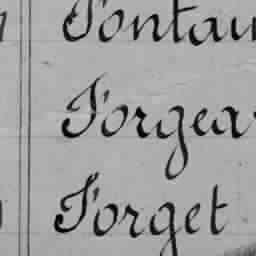 Fontau
Forgea
Forget